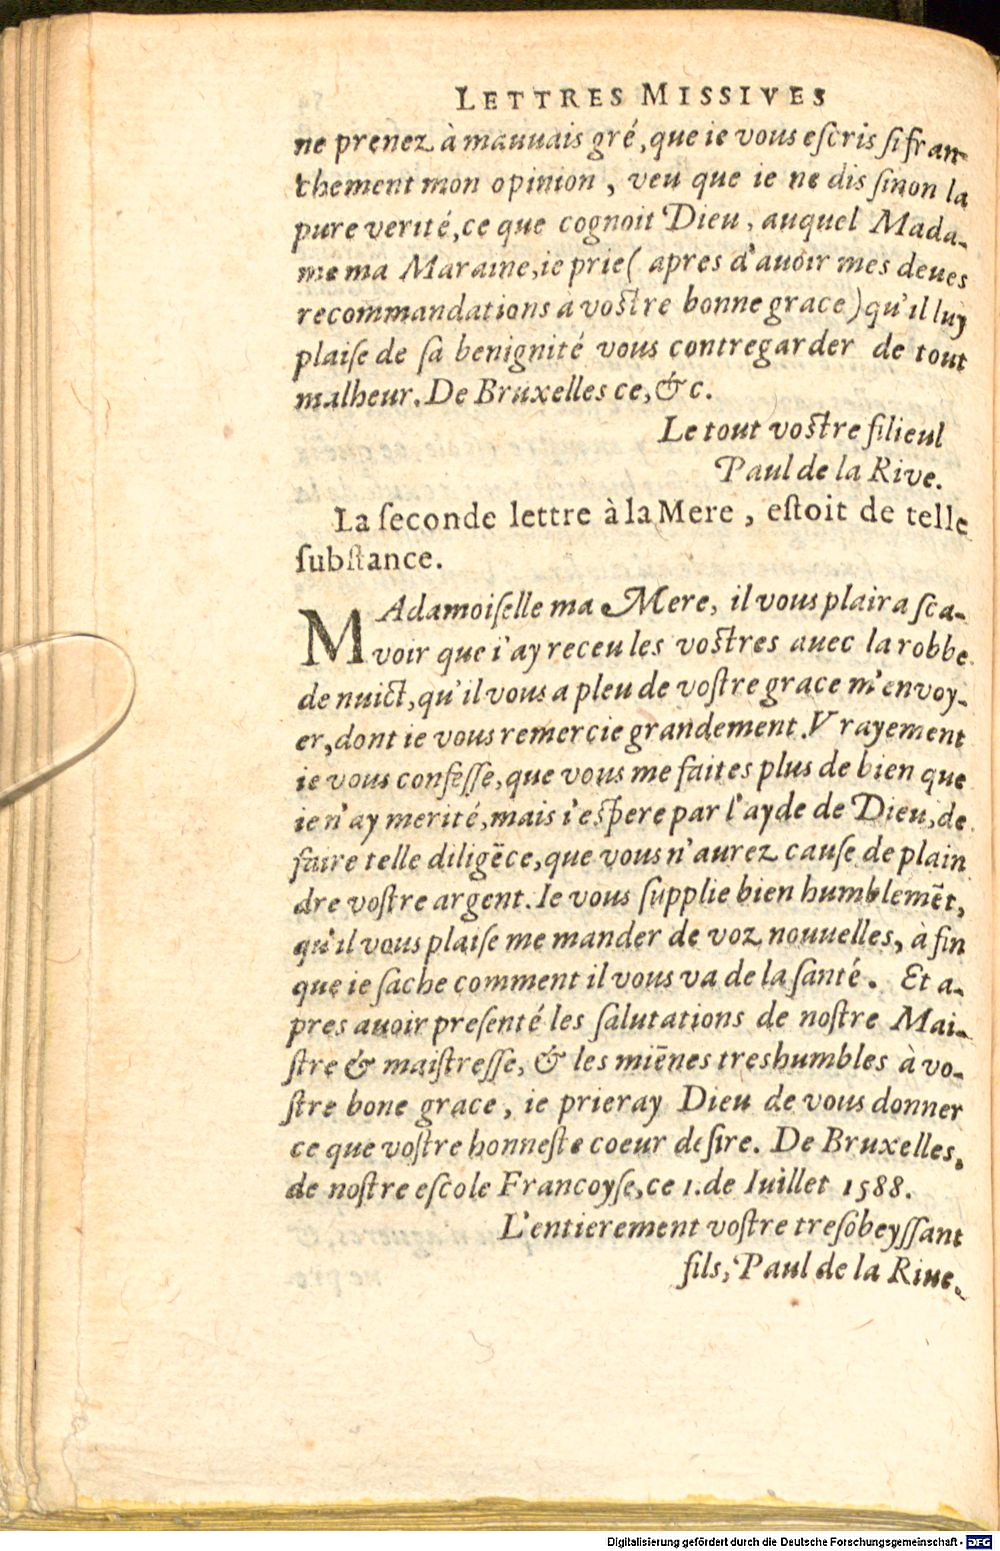 LETTRES MISSIVES
ne prenez à mauuais gré, que ie vous eſcris ſi fran-
chement mon opinion, veu que ie ne dis ſinon la
pure verité, ce que cognoit Dieu, auquel Mada-
me ma Maraine, ie prie ( apres d'auoir mes deues
recommandations a voſtre bonne grace ) qu'il luy
plaiſe de ſa benignité vous contregarder de tout
malheur. De Bruxelles ce, &c.
Le tout voſtre filieul
Paul de la Rive.
La ſeconde lettre à la Mere, eſtoit de telle
ſubſtance.
MAdamoiſelle ma Mere, il vous plaira ſca-
voir que i'ay receu les voſtres auec la robbe
de nuict, qu'il vous a pleu de voſtre grace m'envoy-
er, dont ie vous remercie grandement. Vrayement
ie vous confeſſe, que vous me faites plus de bien que
ie n'ay merité, mais i'eſpere par l'ayde de Dieu, de
faire telle diligēce, que vous n'aurez cauſe de plain
dre voſtre argent. Ie vous ſupplie bien humblemēt,
qu'il vous plaiſe me mander de voz nouuelles, à fin
que ie ſache comment il vous va de la ſanté. Et a-
pres auoir preſenté les ſalutations de noſtre Mai-
ſtre & maiſtreſſe, & les miēnes treshumbles à vo-
ſtre bone grace, ie prieray Dieu de vous donner
ce que voſtre honneſte coeur deſire. De Bruxelles,
de noſtre eſcole Francoyſe, ce 1. de Iuillet 1588.
L'entierement voſtre treſobeyſſant
fils, Paul de la Riue.
Digitalisierung gefördert durch die Deutsche Forschungsgemeinschaft - DFG